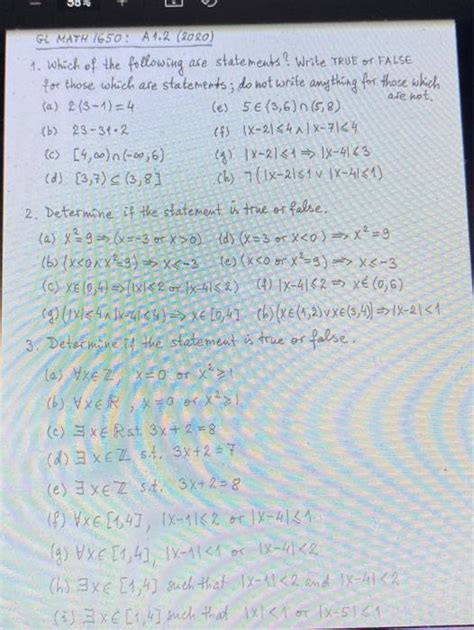 38%
GL MATH 1650: A1.2 (2020)
1. Which of the following are statements? Write TRUE or FALSE
for those which are statements; do not write anything for those which
are not.
(a) 2(3-1)=4 (e) 5∈(3,6)∩(5,8)
(b) 23-31•2 (f) |x-2|≤4∧|x-7|≤4
(c) [4,∞)∩(-∞,6) (g) |x-2|≤1⇒|x-4|≤3
(d) [3,7)⊆(3,8] (h) ¬(|x-2|≤1∨|x-4|≤1)
2. Determine if the statement is true or false.
(a) x²=9⇒(x=-3 or x>0) (d) (x=3 or x<0)⇒x²=9
(b) (x<0∧x²=9)⇒x≤-3 (e) (x<0 or x²=9)⇒x≤-3
(c) x∈(0,4)⇒(|x|≤2 or |x-4|≤2) (f) |x-4|≤2⇒x∈(0,6)
(g) (|x|≤4∧|x-4|≤4)⇒x∈[0,4] (h) (x∈(1,2)∨x∈(3,4])⇒|x-2|<1
3. Determine if the statement is true or false.
(a) ∀x∈Z, x=0 or x²≥1
(b) ∀x∈R, x=0 or x²≥1
(c) ∃x∈R st. 3x+2=8
(d) ∃x∈Z s.t. 3x+2=7
(e) ∃x∈Z s.t. 3x+2=8
(f) ∀x∈[1,4], |x-1|≤2 or |x-4|≤1
(g) ∀x∈[1,4], |x-1|<1 or |x-4|<2
(h) ∃x∈[1,4] such that |x-1|<2 and |x-4|<2
(i) ∃x∈[1,4] such that |x|<1 or |x-5|≤1